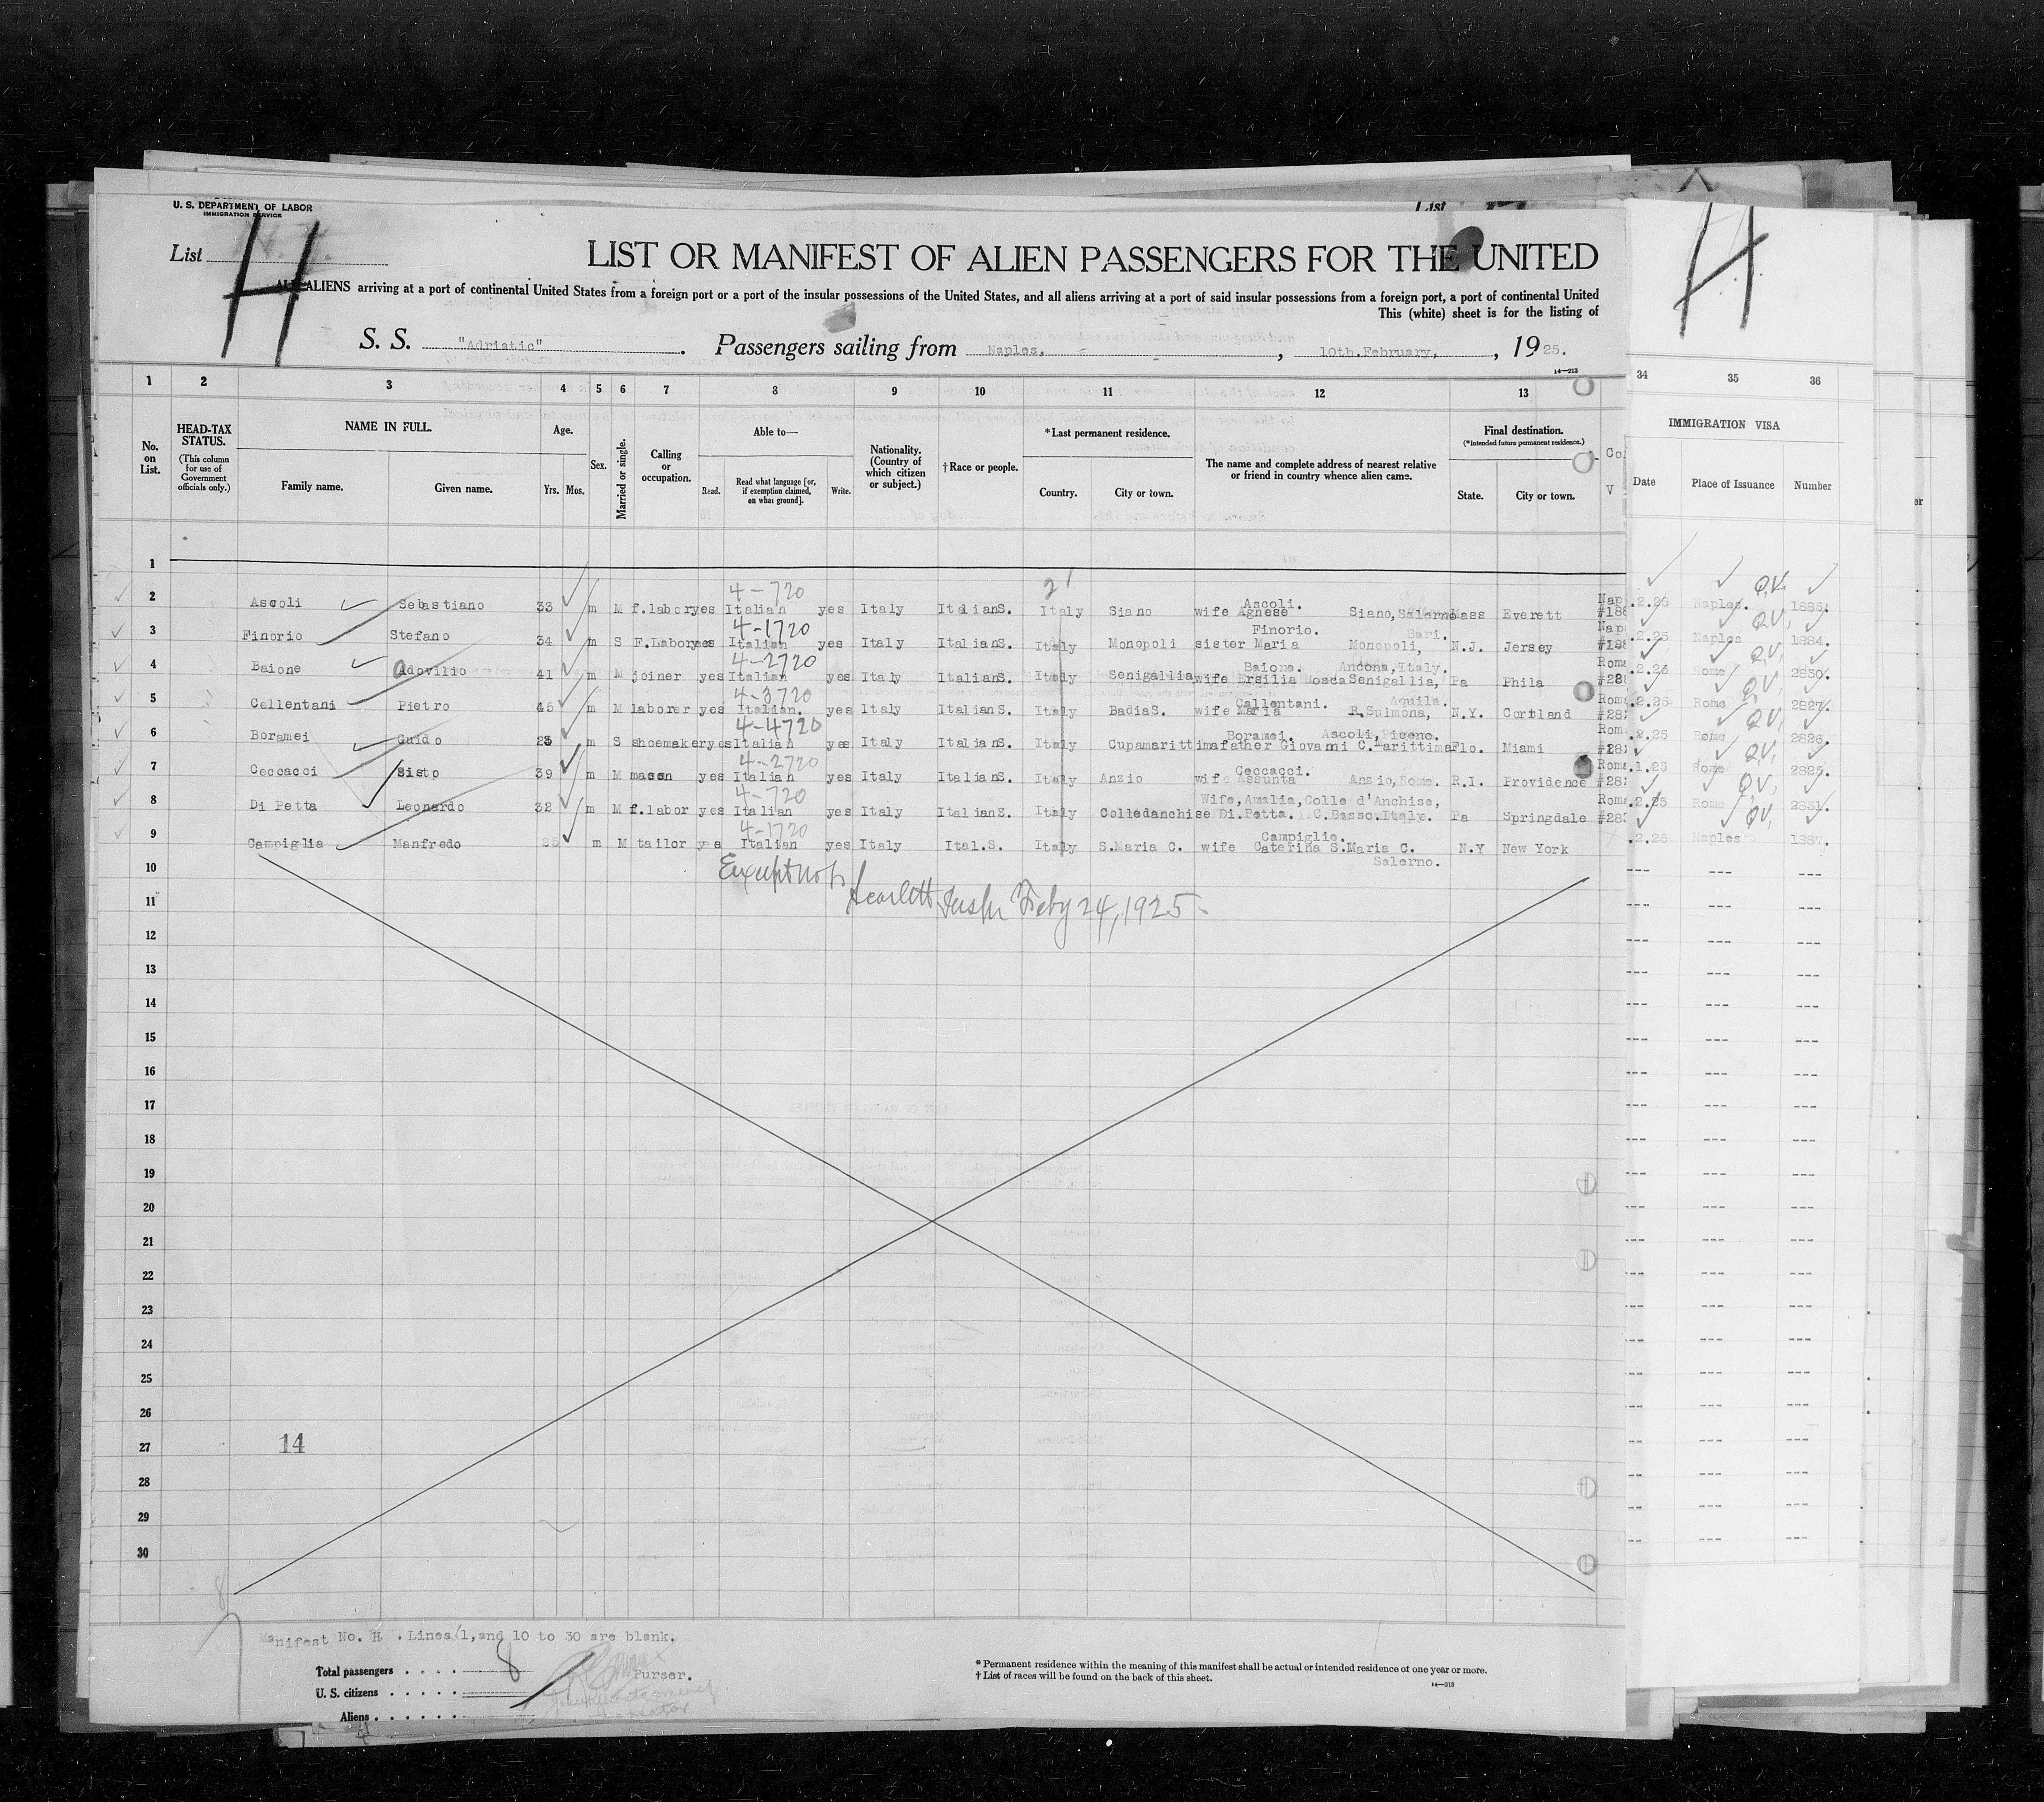 U. S. DEPARTMENT OF LABOR
IMMIGRATION SERVICE
List
List
H
H
LIST OR MANIFEST OF ALIEN PASSENGERS FOR THE UNITED
ALL ALIENS arriving at a port of continental United States from a foreign port or a port of the insular possessions of the United States, and all aliens arriving at a port of said insular possessions from a foreign port, a port of continental United
This (white) sheet is for the listing of
S. S. "Adriatic" . Passengers sailing from Naples, , 10th.February, , 1925.
14—213
1 2 3 4 5 6 7 8 9 10 11 12 13 34 35 36
No. on List.
HEAD-TAX STATUS. (This column for use of Government officials only.)
NAME IN FULL.
Family name. Given name.
Age.
Yrs. Mos.
Sex.
Married or single.
Calling or occupation.
Able to—
Read. Read what language [or, if exemption claimed, on what ground]. Write.
Nationality. (Country of which citizen or subject.)
†Race or people.
*Last permanent residence.
Country. City or town.
The name and complete address of nearest relative or friend in country whence alien came.
Final destination.
(*Intended future permanent residence.)
State. City or town.
IMMIGRATION VISA
Date Place of Issuance Number
1
4-720
2 Ascoli Sebastiano 33 m M f.labor yes Italian yes Italy ItalianS. Italy Siano wife Agnese Ascoli. Siano,Salerno Mass Everett Nap #188 .2.25 Naples. 1885. QV.
4-1720
3 Finorio Stefano 34 m S F.Labor yes Italian yes Italy ItalianS. Italy Monopoli sister Maria Finorio. Monopoli, Bari. N.J. Jersey Nap .2.25 Naples 1884. QV,
4-2720
4 Baione Adovilio 41 m M joiner yes Italian yes Italy ItalianS. Italy Senigallia wife Ersilia Mosca Baione. Senigallia, Ancona,Italy. Pa Phila Roma .2.25 Rome 2830. QV,
4-3720
5 Cellentani Pietro 45 m M laborer yes Italian. yes Italy ItalianS. Italy BadiaS. wife Maria Callentani. B.Sulmona, Aquila. N.Y. Cortland Roma .2.25 Rome 2827. QV,
4-4720
6 Boramei Guido 23 m S shoemaker yes Italian yes Italy ItalianS. Italy Cupamarittima father Giovanni Boramei. C.Marittima Ascoli,Piceno. Flo. Miami Rom .2.25 Rome 2826. QV,
4-2720
7 Ceccacci Sisto 39 m M mason yes Italian yes Italy ItalianS. Italy Anzio wife Assunta Ceccacci. Anzio,Rome. R.I. Providence Roma .1.25 Rome 2825. QV,
4-720
8 Di Petta Leonardo 32 m M f.labor yes Italian yes Italy ItalianS. Italy Colledanchise Wife,Amalia,Colle d'Anchise, Di.Petta. C.Basso.Italy. Pa Springdale Roma .2.25 Rome 2831. QV,
4-1720
9 Campiglia Manfredo 25 m M tailor yes Italian yes Italy Ital.S. Italy S.Maria C. wife Caterina Campiglie. S.Maria C. Salerno. N.Y New York .2.25 Naples 1887. QV,
10
11 Feby 24, 1925
12
13
14
15
16
17
18
19
20
21
22
23
24
25
26
27 14
28
29
30
Manifest No. H . Lines 1,and 10 to 30 are blank.
Total passengers . . . . 8
Purser.
U. S. citizens . . . . .
Aliens . . . . . .
* Permanent residence within the meaning of this manifest shall be actual or intended residence of one year or more.
† List of races will be found on the back of this sheet.
14—213